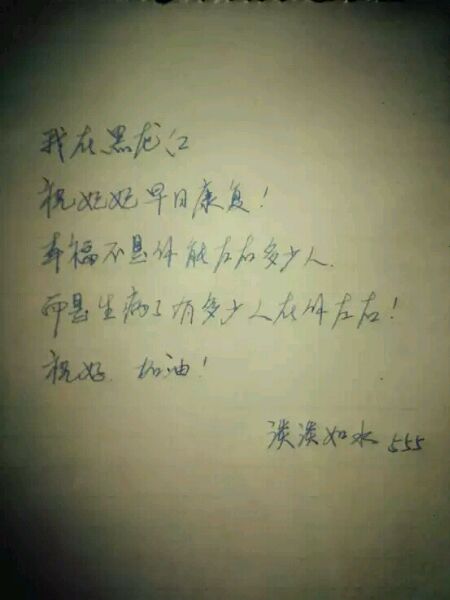 我在黑龙江
祝妃妃早日康复!
幸福不是你能左右多少人.
而是生病了有多少人在你左右!
祝好. 加油!
淡淡如水 555